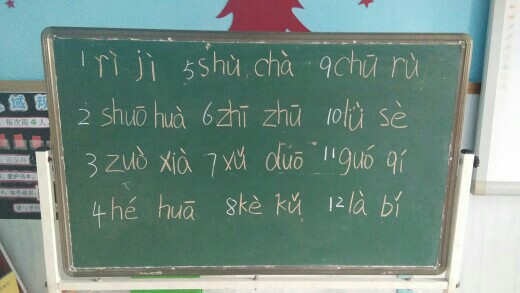 1 rì jì 5 shù chà 9 chū rù
2 shuō huà 6 zhī zhū 10 lǜ sè
3 zuò xià 7 xǔ duō 11 guó qí
4 hé huā 8 kè kǔ 12 là bǐ
每次限4人